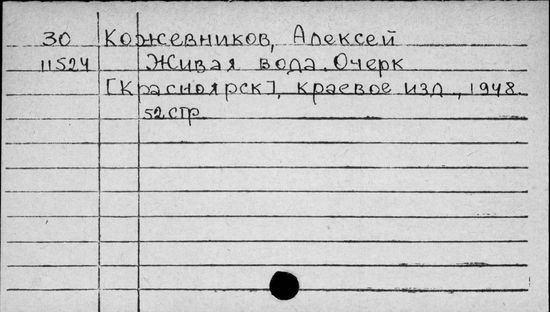 30 Кожевников, Алексей
11524 Живая вода. Очерк
[Красноярск], краевое изд., 1948.
52 стр.